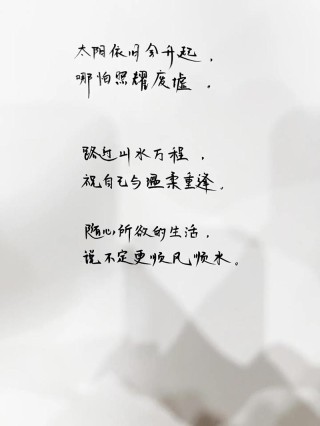 太阳依旧会升起，
哪怕照耀废墟。
路过山水万程，
祝自己与温柔重逢。
随心所欲的生活，
说不定更顺风顺水。